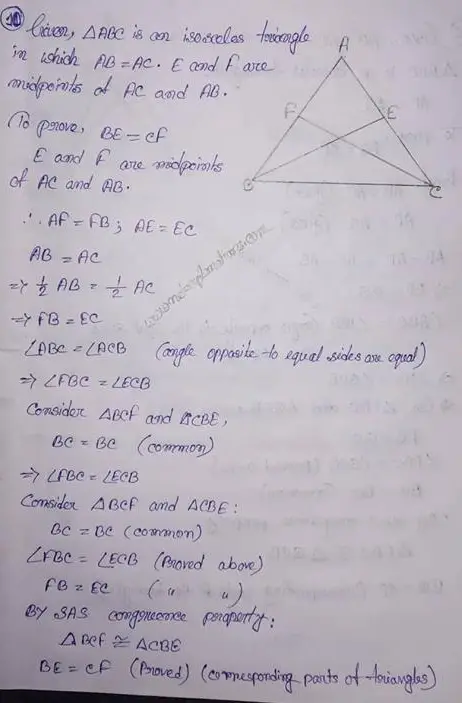 10 Given, △ABC is an isosceles triangle
in which AB = AC. E and F are
midpoints of AC and AB.
To prove, BE = CF
E and F are midpoints
of AC and AB.
∴ AF = FB ; AE = EC
AB = AC
=> 1/2 AB = 1/2 AC
=> FB = EC
∠ABC = ∠ACB (angle opposite to equal sides are equal)
=> ∠FBC = ∠ECB
Consider △BCF and △CBE,
BC = BC (common)
=> ∠FBC = ∠ECB
Consider △BCF and △CBE :
BC = BC (common)
∠FBC = ∠ECB (Proved above)
FB = EC ( " " )
BY SAS congruence property :
△BCF ≅ △CBE
BE = CF (Proved) (corresponding parts of triangles)
A
F
E
B
C